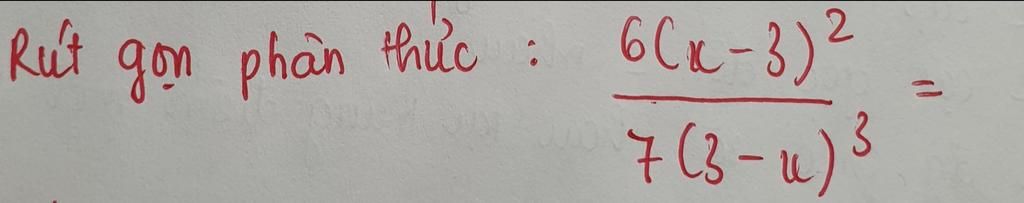 Rút gọn phân thức : 6(x-3)²
7(3-x)³ =